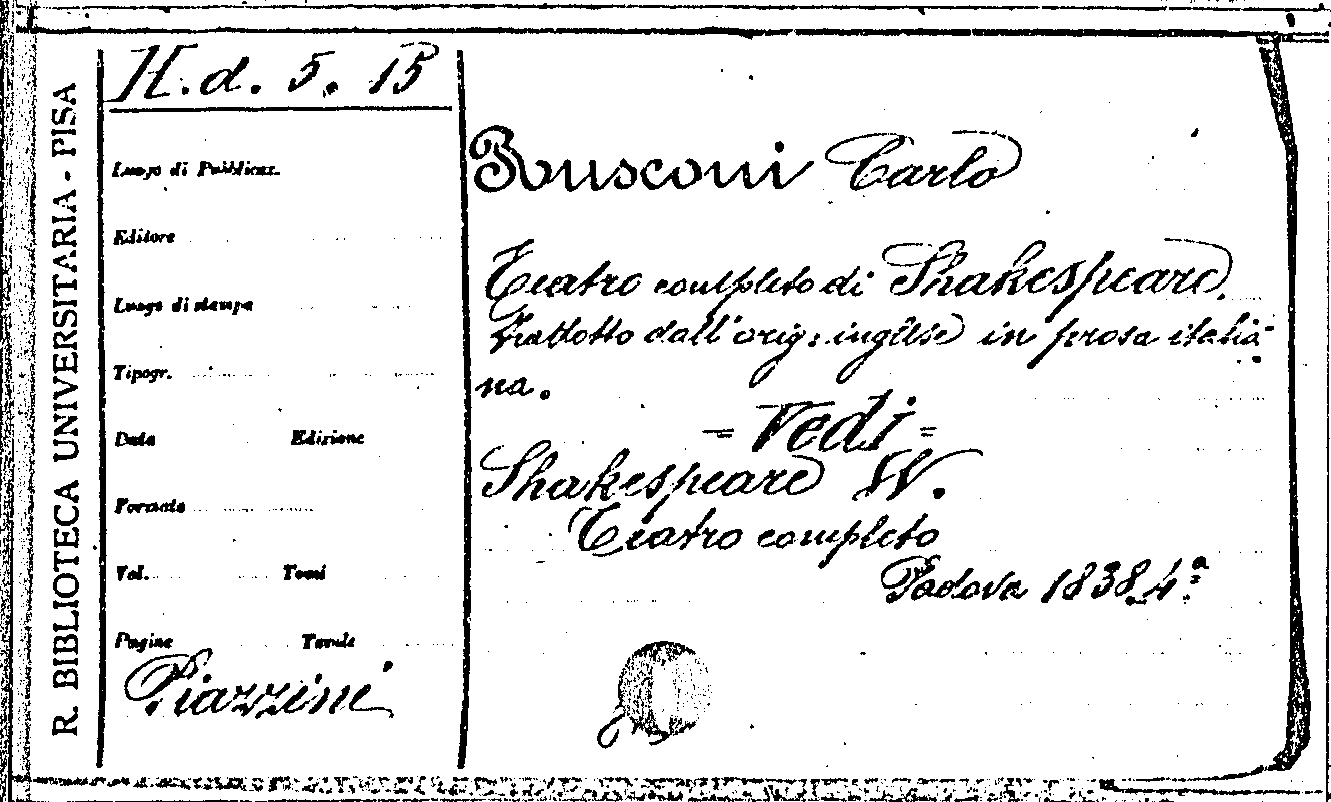 R. BIBLIOTECA UNIVERSITARIA - PISA
H. d. 5. 15
Luogo di Pubblicaz.
Editore
Luogo di stampa
Tipogr.
Data Edizione
Formato
Vol. Tomi
Pagine Tavole
Piazzini
Rusconi Carlo
Teatro completo di Shakespeare.
Tradotto dall'orig: inglese in prosa italia-
na.
= Vedi =
Shakespeare W.
Teatro completo
Padova 1838. 4º